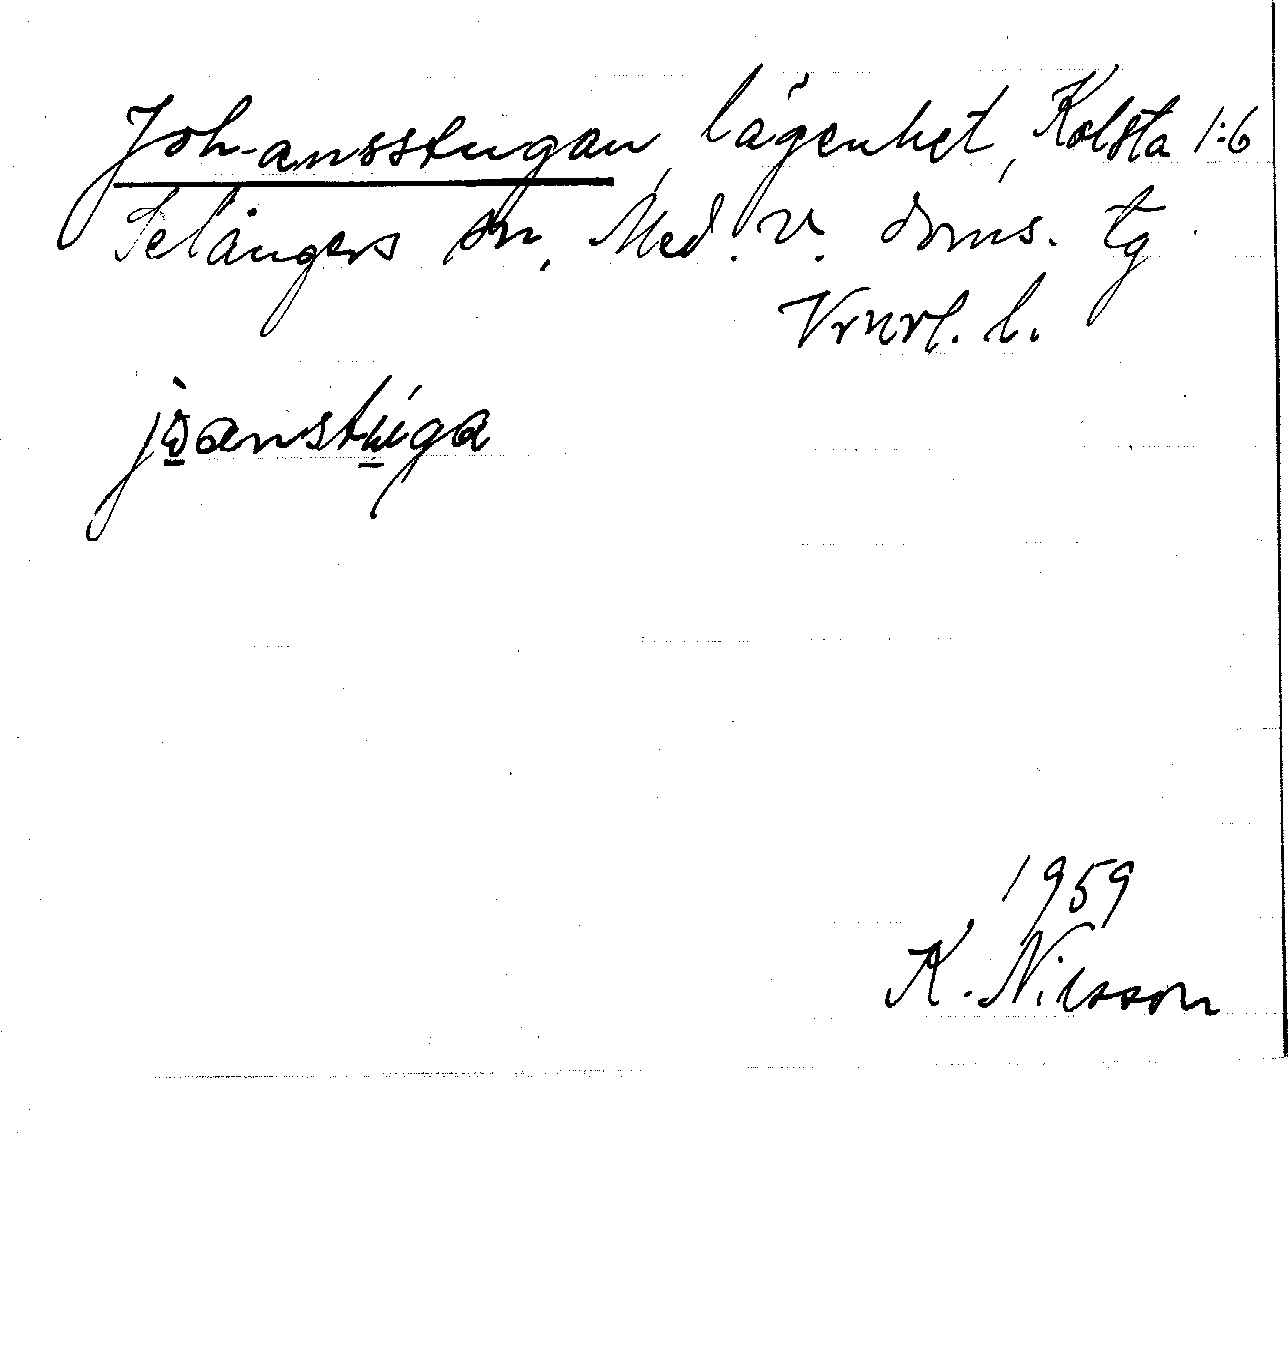 Johansstugan, lägenhet, Kolsta 1:6
Selångers sn, Med. v. doms. tg
Vrnrl. l.
jo̱anstú̱ga
1959
K. Nilsson